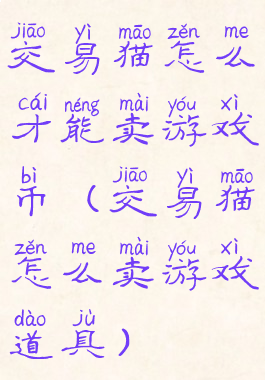 jiāo yì māo zěn me
交易猫怎么
cái néng mài yóu xì
才能卖游戏
bì jiāo yì māo
币（交易猫
zěn me mài yóu xì
怎么卖游戏
dào jù
道具）